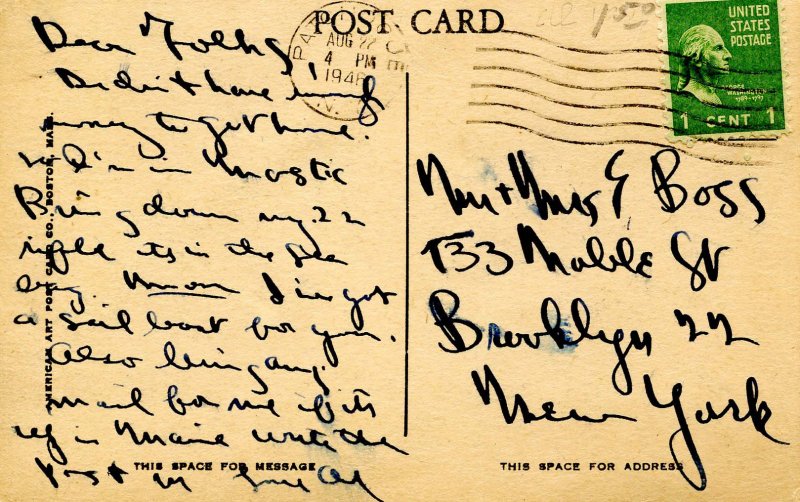 POST CARD
AUG 22
4 PM
1946
N.Y.
UNITED
STATES
POSTAGE
GEORGE
WASHINGTON
1789-1797
1 CENT 1
Dear Folks
Didn't have enough
money to get home.
I'm in Mastic
Bring down my 22
rifle its in the
bag. Mom I've got
a sail boat for you.
Also bring any
mail for me if its
in Maine write the
Love Al
Mr + Mrs E Boss
133 Noble St
Brooklyn 22
New York
AMERICAN ART POST CARD CO., BOSTON, MASS.
THIS SPACE FOR MESSAGE
THIS SPACE FOR ADDRESS